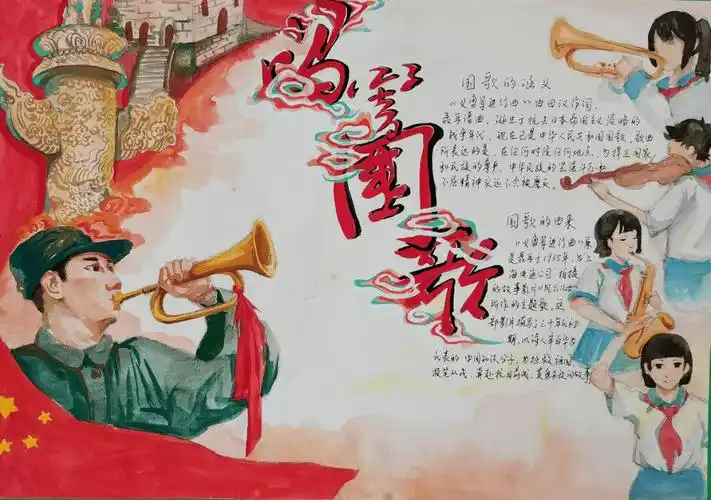 的
國
歌
国歌的涵义
《义勇军进行曲》由田汉作词,
聂耳谱曲,诞生于抗击日本帝国主义侵略的
战争年代,现在已是中华人民共和国国歌。歌曲
所表达的是,在任何时候任何地点,为捍卫国家
和民族的尊严,中华民族的坚强斗志和
不屈精神永远不会被磨灭。
国歌的由来
《义勇军进行曲》原
是聂耳于1935年,为上
海电通公司拍摄
的故事影片《风云儿女》
所作的主题歌。这
部影片描写了三十年代初
期,以诗人辛白华为
代表的中国知识分子,为拯救祖国
投笔从戎,奔赴抗日前线,英勇杀敌的故事